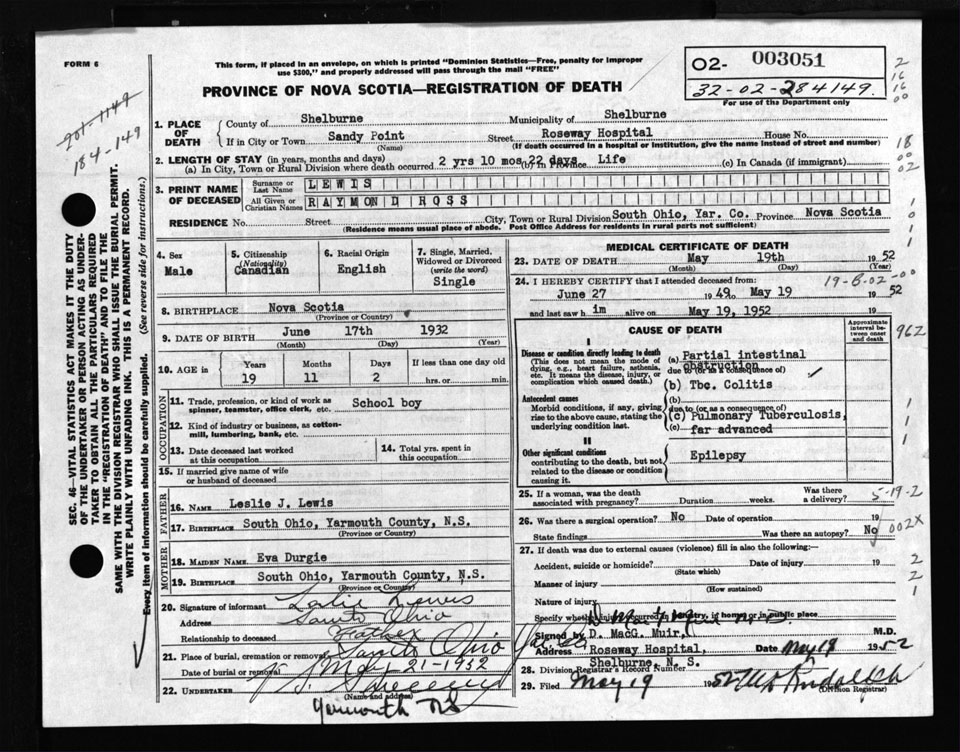 FORM 6
This form, if placed in an envelope, on which is printed "Dominion Statistics—Free, penalty for improper
use $300," and properly addressed will pass through the mail "FREE"
PROVINCE OF NOVA SCOTIA—REGISTRATION OF DEATH
02- 003051
32-02-284149.
For use of the Department only
2
16
16
00
201-1149
184-149
1. PLACE OF DEATH
County of Shelburne Municipality of Shelburne
If in City or Town Sandy Point Street Roseway Hospital House No.
(Name) (If death occurred in a hospital or institution, give the name instead of street and number)
18
00
02
2. LENGTH OF STAY (in years, months and days)
(a) In City, Town or Rural Division where death occurred 2 yrs 10 mos 22 days (b) In Province Life (c) In Canada (if immigrant)
3. PRINT NAME OF DECEASED
Surname or Last Name LEWIS
All Given or Christian Names RAYMOND ROSS
RESIDENCE No. Street City, Town or Rural Division South Ohio, Yar. Co. Province Nova Scotia
(Residence means usual place of abode. Post Office Address for residents in rural parts not sufficient)
1
0
1
1
4. Sex
Male
5. Citizenship
(Nationality)
Canadian
6. Racial Origin
English
7. Single, Married,
Widowed or Divorced
(write the word)
Single
8. BIRTHPLACE Nova Scotia
(Province or Country)
9. DATE OF BIRTH June 17th 1932
(Month) (Day) (Year)
10. AGE in
Years Months Days If less than one day old
19 11 2 hrs. or min.
OCCUPATION
11. Trade, profession, or kind of work as
spinner, teamster, office clerk, etc. School boy
12. Kind of industry or business, as cotton-
mill, lumbering, bank, etc.
13. Date deceased last worked
at this occupation
14. Total yrs. spent in
this occupation
15. If married give name of wife
or husband of deceased
FATHER
16. NAME Leslie J. Lewis
17. BIRTHPLACE South Ohio, Yarmouth County, N.S.
(Province or Country)
MOTHER
18. MAIDEN NAME Eva Durgie
19. BIRTHPLACE South Ohio, Yarmouth County, N.S.
(Province or Country)
20. Signature of informant Leslie Lewis
Address South Ohio
Relationship to deceased Father
21. Place of burial, cremation or removal South Ohio
Date of burial or removal May 21-1952
22. UNDERTAKER
(Name and address)
Yarmouth NS
MEDICAL CERTIFICATE OF DEATH
23. DATE OF DEATH May 19th 1952
(Month) (Day) (Year)
24. I HEREBY CERTIFY that I attended deceased from:
19-B-02-00
June 27 1949 to May 19 1952
and last saw him alive on May 19, 1952 19
CAUSE OF DEATH
Approximate interval between onset and death
962
I
Disease or condition directly leading to death
(This does not mean the mode of
dying, e.g., heart failure, asthenia,
etc. It means the disease, injury, or
complication which caused death.)
(a) Partial intestinal
obstruction
due to (or as a consequence of)
(b) Tbc. Colitis
Antecedent causes
Morbid conditions, if any, giving
rise to the above cause, stating the
underlying condition last.
(b)
due to (or as a consequence of)
(c) Pulmonary Tuberculosis,
(c) far advanced
1
1
1
II
Other significant conditions
contributing to the death, but not
related to the disease or condition
causing it.
Epilepsy
25. If a woman, was the death
associated with pregnancy? Duration weeks. Was there
a delivery?
5-19-2
26. Was there a surgical operation? No Date of operation 19
State findings Was there an autopsy? No
002X
27. If death was due to external causes (violence) fill in also the following:
Accident, suicide or homicide? Date of injury 19
(State which)
Manner of injury
(How sustained)
Nature of injury
Specify whether injury occurred in industry, in home, or in public place
2
2
1
Signed by D. MacG. Muir, M.D.
Address Roseway Hospital, Date May 19 1952
Shelburne, N. S.
28. Division Registrar's Record Number
29. Filed May 19 1952
(Division Registrar)
SEC. 46—VITAL STATISTICS ACT MAKES IT THE DUTY
OF THE UNDERTAKER OR PERSON ACTING AS UNDER-
TAKER TO OBTAIN ALL THE PARTICULARS REQUIRED
IN THE "REGISTRATION OF DEATH" AND TO FILE THE
SAME WITH THE DIVISION REGISTRAR WHO SHALL ISSUE THE BURIAL PERMIT.
WRITE PLAINLY WITH UNFADING INK. THIS IS A PERMANENT RECORD.
Every item of information should be carefully supplied. (See reverse side for instructions.)